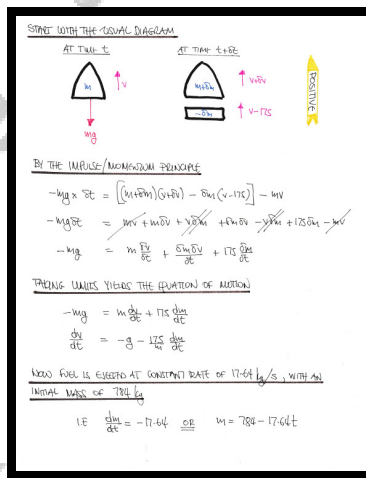 START WITH THE USUAL DIAGRAM
AT TIME t
AT TIME t+δt
m
↑ v
mg
m+δm
↑ v+δv
-δm
↑ v-175
POSITIVE
BY THE IMPULSE/MOMENTUM PRINCIPLE
-mg × δt = [(m+δm)(v+δv) - δm(v-175)] - mv
-mgδt = mv + mδv + vδm + δmδv - vδm + 175δm - mv
-mg = m δv/δt + δmδv/δt + 175 δm/δt
TAKING LIMITS YIELDS THE EQUATION OF MOTION
-mg = m dv/dt + 175 dm/dt
dv/dt = -g - 175/m dm/dt
NOW FUEL IS EJECTED AT CONSTANT RATE OF 17.64 kg/s, WITH AN
INITIAL MASS OF 784 kg
I.E dm/dt = -17.64 OR m = 784 - 17.64t